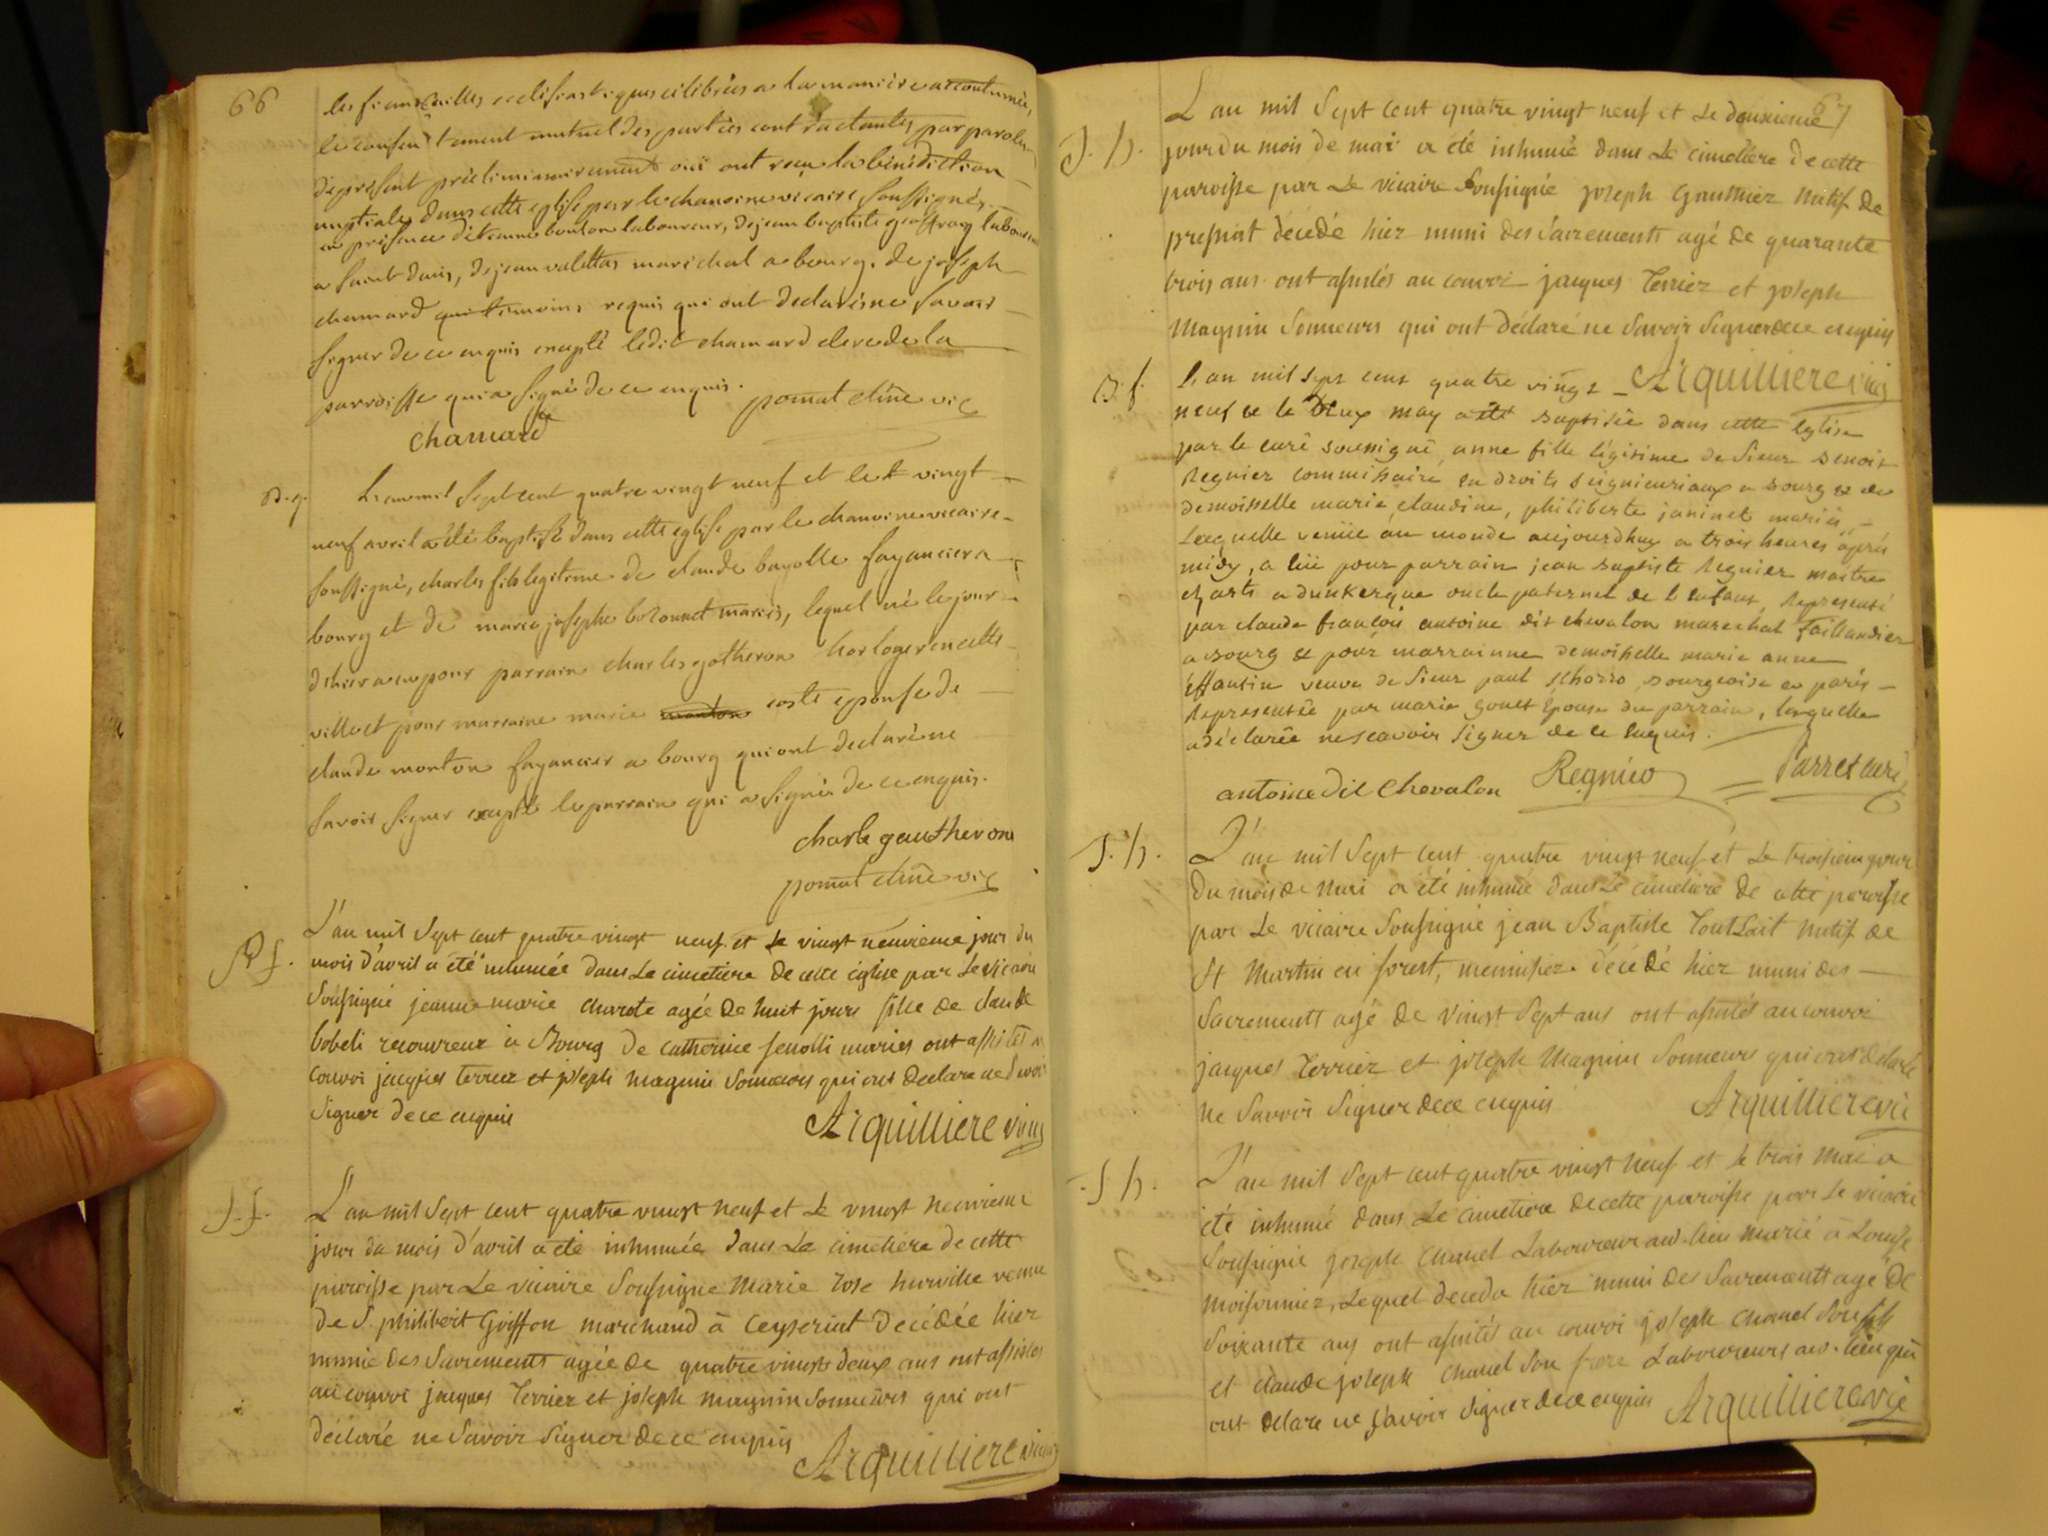 66
les fiancailles ecclesiastiques célébrées a la maniére accoutumée,
le consentement mutuel des parties contractantes par parole
de présent préliminairement oui ont reçu la bénédiction
nuptiale dans cette eglise par le chanoine vicaire soussigné,
en présence d'étienne bouton laboureur, de jean baptiste geoffray laboureur
a saint denis, de jean valettas maréchal a bourg, de joseph
chamard temoins requis qui ont declarés ne savoir
signer de ce enquis excepté ledit chamard clerc de la
parroisse qui a signé de ce enquis. pomat chne vic
chamard
B. g. L'an mil sept cent quatre vingt neuf et le vingt
neuf avril a été baptisé dans cette eglise par le chanoine vicaire
soussigné, charles fils legitime de claude bayolle fayancier a
bourg et de marie josephe bolonnet mariés, lequel né le jour
d'hier a eu pour parrain charles gotheron horloger en cette
ville et pour marraine marie coste epouse de
claude monton fayancier a bourg qui ont declaré ne
savoir signer excepté le parrain qui a signé de ce enquis.
charle gautheron
pomat chne vic
S f. L'an mil sept cent quatre vingt neuf et le vingt neuvieme jour du
mois d'avril a été inhumée dans le cimetiere de cette église par le vicaire
soussigné jeanne marie charlote agée de huit jours fille de claude
bobeli recouvreur à Bourg de catherine fenolli mariés ont assistés au
convoi jacques terrier et joseph magnin sonneurs qui ont declare ne savoir
signer de ce enquis Arquilliere vicaire
S. f. L'an mil sept cent quatre vingt neuf et le vingt neuvieme
jour du mois d'avril a été inhumée dans le cimetiere de cette
paroisse par le vicaire soussigné marie rose hurville veuve
de S. philibert Goiffon marchand à Ceyseriat décédée hier
munie des sacrements agée de quatre vingts deux ans ont assistés
au convoi jacques Terrier et joseph magnin sonneurs qui ont
déclaré ne savoir signer de ce enquis Arquilliere vicaire
67
L'an mil sept cent quatre vingt neuf et le deuxieme
S. h. jour du mois de mai a été inhumé dans le cimetiére de cette
paroisse par le vicaire soussigné joseph Gauthier natif de
pressiat décédé hier muni des sacrements agé de quarante
trois ans ont assistés au convoi jacques Terrier et joseph
magnin sonneurs qui ont déclaré ne savoir signer de ce enquis
B. f. L'an mil sept cent quatre vingt Arquilliere vic
neuf et le deux may a été baptisée dans cette eglise
par le curé soussigné, anne fille légitime de sieur benoit
Regnier commissaire en droits seigneuriaux a bourg et de
demoiselle marie claudine, philiberte janinet mariés,
laquelle venüe au monde aujourdhuy a trois heures aprés
midy, a eüe pour parrain jean baptiste Regnier maitre
ez arts a dunkerque oncle paternel de l'enfant, Représenté
par claude françois antoine dit chevalon marechal Taillandier
a bourg et pour marrainne demoiselle marie anne
veuve de sieur paul bourgeoise a paris
Representée par marie gonet épouse du parrain, laquelle
a déclarée ne scavoir signer de ce enquis.
antoine dit chevalon Regnier Parret curé
S. h. L'an mil sept cent quatre vingt neuf et le troisieme jour
du mois de mai a été inhumé dans le cimetiere de cette paroisse
par le vicaire soussigné jean Baptiste natif de
St Martin en forest, menuisier décédé hier muni des
sacrements agé de vingt sept ans ont assistés au convoi
jacques Terrier et joseph magnin sonneurs qui ont déclaré
ne savoir signer de ce enquis Arquilliere vic
S h. L'an mil sept cent quatre vingt neuf et le trois mai a
été inhumé dans le cimetiere de cette paroisse par le vicaire
soussigné joseph chanel Laboureur au lieu marié à Louise
moissonnier, lequel deceda hier muni des sacrements agé de
soixante ans ont assistés au convoi joseph chanel son fils
et claude joseph chanel son frere Laboureurs au lieu qui
ont declare ne savoir signer de ce enquis Arquilliere vic